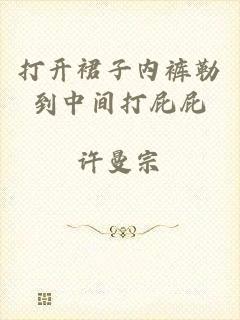 打开裙子内裤勒
到中间打屁屁
许曼宗